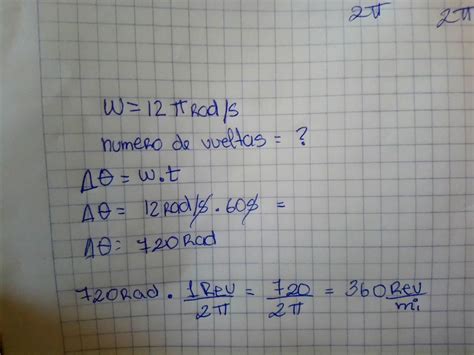 2π 2π
W = 12 π Rad/s
numero de vueltas = ?
Δθ = w.t
Δθ = 12 Rad/s . 60 s =
Δθ: 720 Rad
720 Rad . 1 Rev / 2π = 720 / 2π = 360 Rev / mi